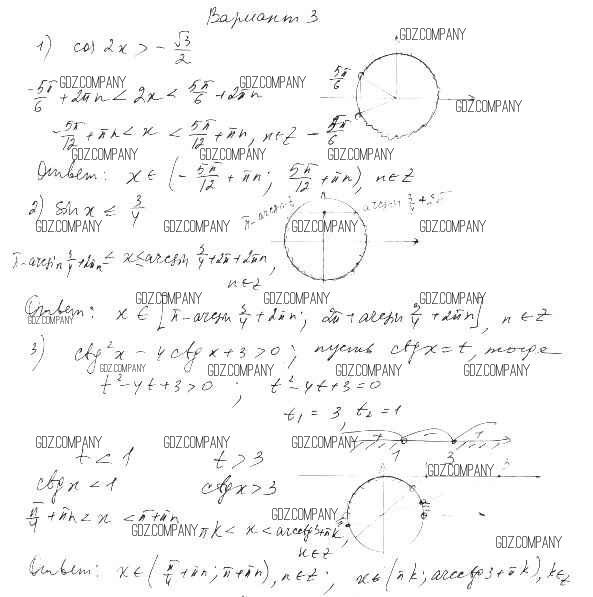 Вариант 3
GDZ.COMPANY
1) cos 2x > - √3/2
5π/6
GDZ.COMPANY GDZ.COMPANY
-5π/6 + 2πn < 2x < 5π/6 + 2πn
GDZ.COMPANY
-5π/12 + πn < x < 5π/12 + πn, n∈Z
- 5π/6
GDZ.COMPANY GDZ.COMPANY GDZ.COMPANY
Ответ: x ∈ (- 5π/12 + πn; 5π/12 + πn), n∈Z
2) sin x ≤ 3/4
π - arcsin 3/4 arcsin 3/4 + 2π
GDZ.COMPANY GDZ.COMPANY GDZ.COMPANY GDZ.COMPANY
π - arcsin 3/4 + 2πn ≤ x ≤ arcsin 3/4 + 2π + 2πn,
n∈Z
GDZ.COMPANY GDZ.COMPANY GDZ.COMPANY
Ответ: x ∈ [π - arcsin 3/4 + 2πn; 2π + arcsin 3/4 + 2πn], n ∈ Z
GDZ.COMPANY
3) ctg²x - 4ctgx + 3 > 0; пусть ctgx = t, тогда
GDZ.COMPANY GDZ.COMPANY GDZ.COMPANY GDZ.COMPANY
t² - 4t + 3 > 0; t² - 4t + 3 = 0
t₁ = 3, t₂ = 1
+ - +
GDZ.COMPANY GDZ.COMPANY GDZ.COMPANY GDZ.COMPANY
1 3
t < 1 t > 3
GDZ.COMPANY GDZ.COMPANY
3
ctgx < 1 ctgx > 3
π/4 + πn < x < π + πn
GDZ.COMPANY GDZ.COMPANY
πk < x < arcctg3 + πk,
GDZ.COMPANY
k∈Z
Ответ: x∈(π/4 + πn; π + πn), n∈Z; x∈(πk; arcctg3 + πk), k∈Z